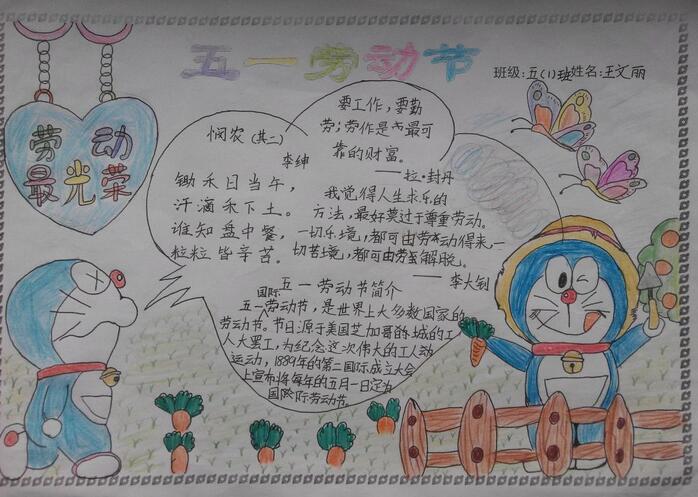 五一劳动节
班级:五(1)班姓名:王文丽
劳动
最光荣
悯农(其二)
李绅
锄禾日当午,
汗滴禾下土。
谁知盘中餐,
粒粒皆辛苦。
要工作,要勤
劳;劳作是最可
靠的财富。
——拉·封丹
我觉得人生求乐的
方法,最好莫过于尊重劳动。
一切乐境,都可由劳动得来,一
切苦境,都可由劳动解脱。
——李大钊
五一劳动节简介
国际
五一劳动节,是世界上大多数国家的
劳动节。节日源于美国芝加哥城的工
人大罢工,为纪念这次伟大的工人动
运动,1889年的第二国际成立大会
上宣布将每年的五月一日定为
国际劳动节。